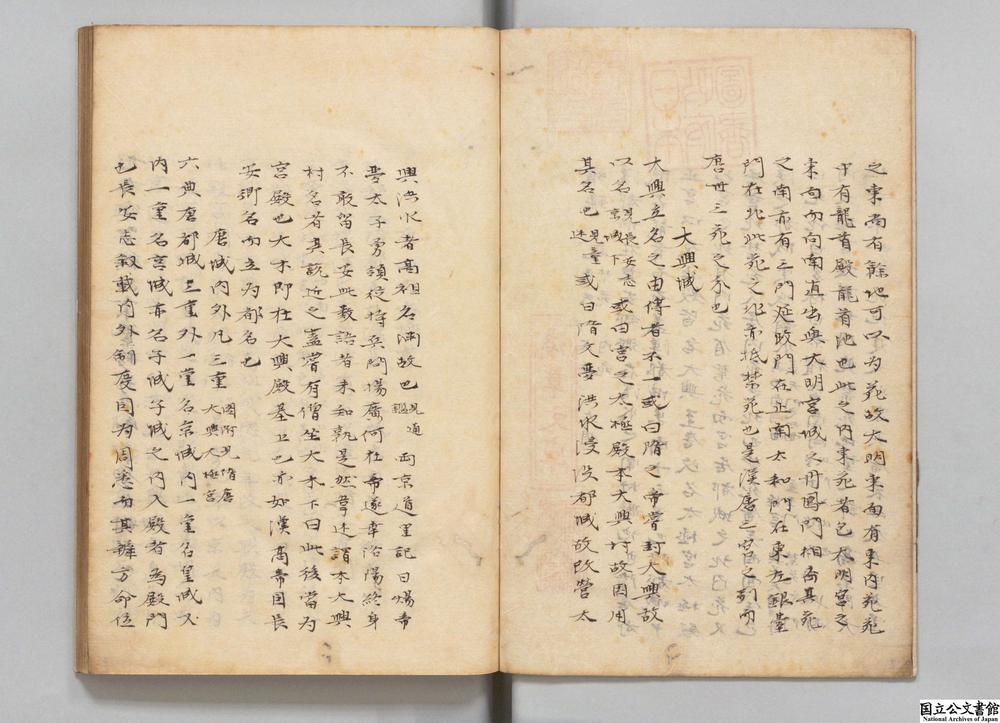 之東尚有餘地可以為苑故大明東面有東内苑苑
中有龍首殿龍首池也此之内東苑者包大明宮之
東面而向南直出與大明宮城之丹鳳門相齊其苑
之南亦有三門延政門在正南太和門在東左銀臺
門在北此苑之北亦抵禁苑也是漢唐三宮之別而
唐世三苑之系也
大興城
大興立名之由傳者不一或曰隋文帝嘗封大興故
以名 見長安志京城下 或曰宮之太極殿本大興村故因用
其名也 見呂圖迷 或曰隋文夢洪水浸沒都城故改營太
興洪水者高祖名淵故也 見通鑑 両京道里記曰煬帝
夢太子勇領徒持兵問楊廣何在帝遂幸洛陽終身
不敢留長安此数語者未知孰是然韋述謂本大興
村名者其說近之蓋嘗有僧坐大木下曰此後當為
宮殿也大木即在大興殿基上也亦如漢高帝因長
安鄉名而立為都名也
唐城内外凡三重 圖附見隋唐大興大極宮
六典唐都城三重外一重名京城内一重名皇城又
内一重名宮城亦名子城子城之内入殿者為殿門
也長安志叙載内外制度固為周悉而其辨方命位
国立公文書館
National Archives of Japan